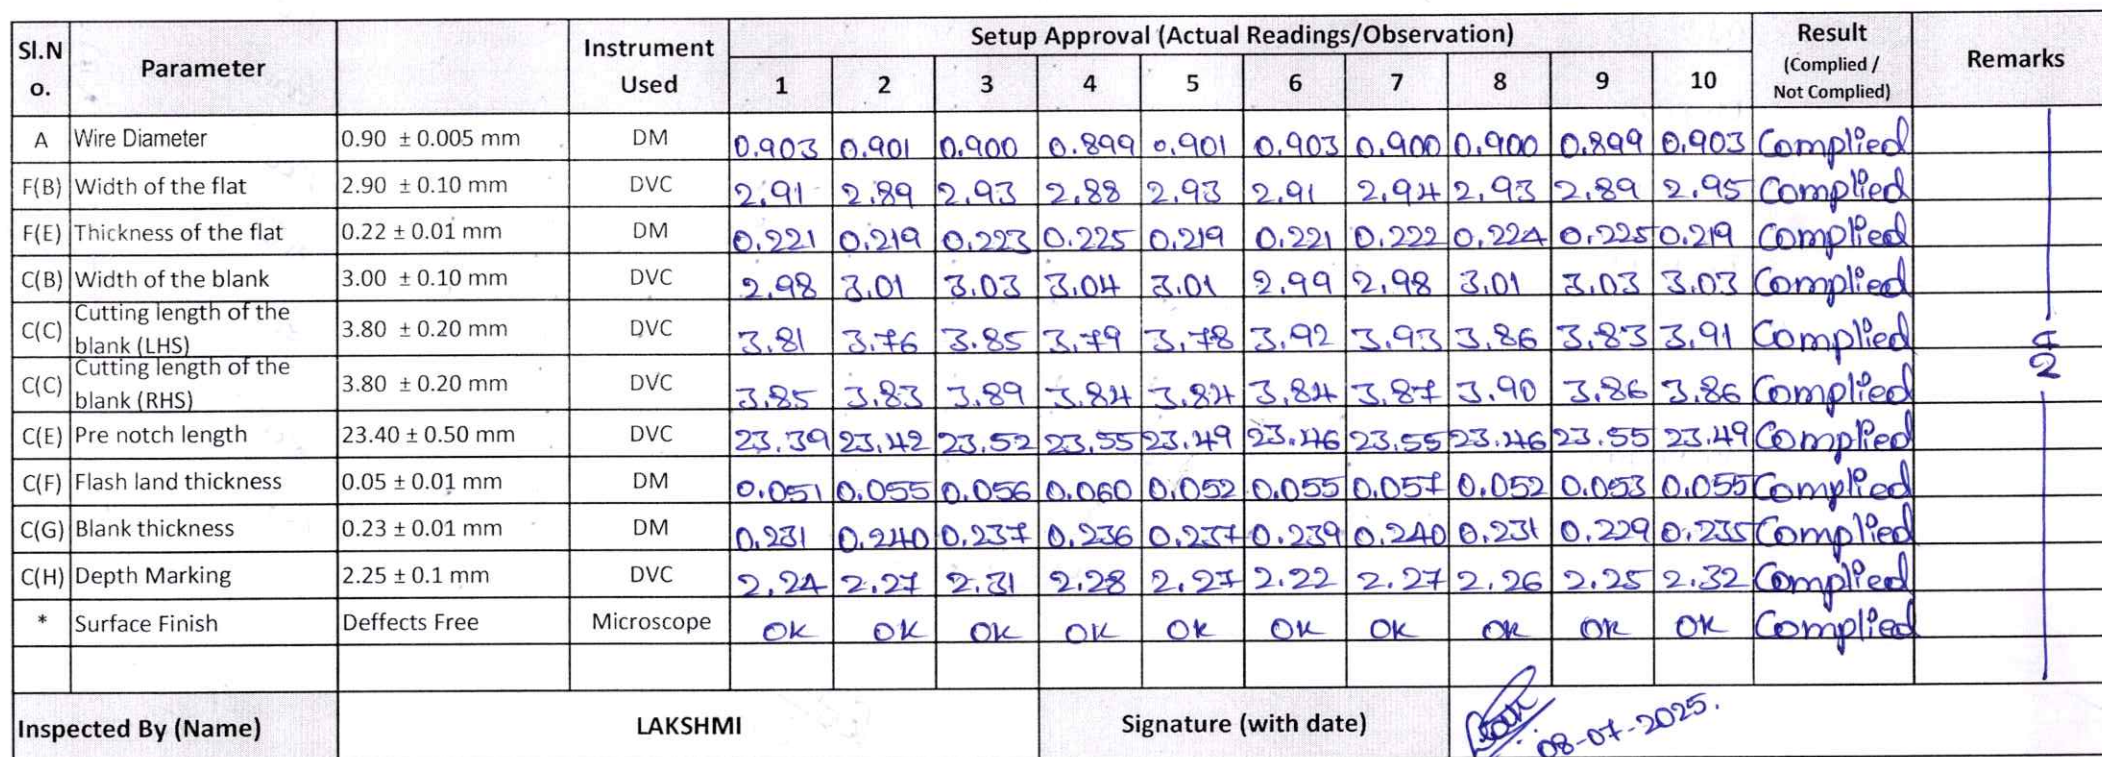 Sl.No. Parameter Instrument Used Setup Approval (Actual Readings/Observation) Result (Complied / Not Complied) Remarks
1 2 3 4 5 6 7 8 9 10
A Wire Diameter 0.90 ± 0.005 mm DM 0.903 0.901 0.900 0.899 0.901 0.903 0.900 0.900 0.899 0.903 Complied
F(B) Width of the flat 2.90 ± 0.10 mm DVC 2.91 2.89 2.93 2.88 2.93 2.91 2.94 2.93 2.89 2.95 Complied
F(E) Thickness of the flat 0.22 ± 0.01 mm DM 0.221 0.219 0.223 0.225 0.219 0.221 0.222 0.224 0.225 0.219 Complied
C(B) Width of the blank 3.00 ± 0.10 mm DVC 2.98 3.01 3.03 3.04 3.01 2.99 2.98 3.01 3.03 3.03 Complied
C(C) Cutting length of the blank (LHS) 3.80 ± 0.20 mm DVC 3.81 3.76 3.85 3.79 3.78 3.92 3.93 3.86 3.83 3.91 Complied
C(C) Cutting length of the blank (RHS) 3.80 ± 0.20 mm DVC 3.85 3.83 3.89 3.84 3.84 3.84 3.87 3.90 3.86 3.86 Complied
C(E) Pre notch length 23.40 ± 0.50 mm DVC 23.39 23.42 23.52 23.55 23.49 23.46 23.55 23.46 23.55 23.49 Complied
C(F) Flash land thickness 0.05 ± 0.01 mm DM 0.051 0.055 0.056 0.060 0.052 0.055 0.057 0.052 0.053 0.055 Complied
C(G) Blank thickness 0.23 ± 0.01 mm DM 0.231 0.240 0.237 0.236 0.237 0.239 0.240 0.231 0.229 0.235 Complied
C(H) Depth Marking 2.25 ± 0.1 mm DVC 2.24 2.27 2.31 2.28 2.27 2.22 2.27 2.26 2.25 2.32 Complied
* Surface Finish Deffects Free Microscope OK OK OK OK OK OK OK OK OK OK Complied
Inspected By (Name) LAKSHMI Signature (with date) 08-07-2025.